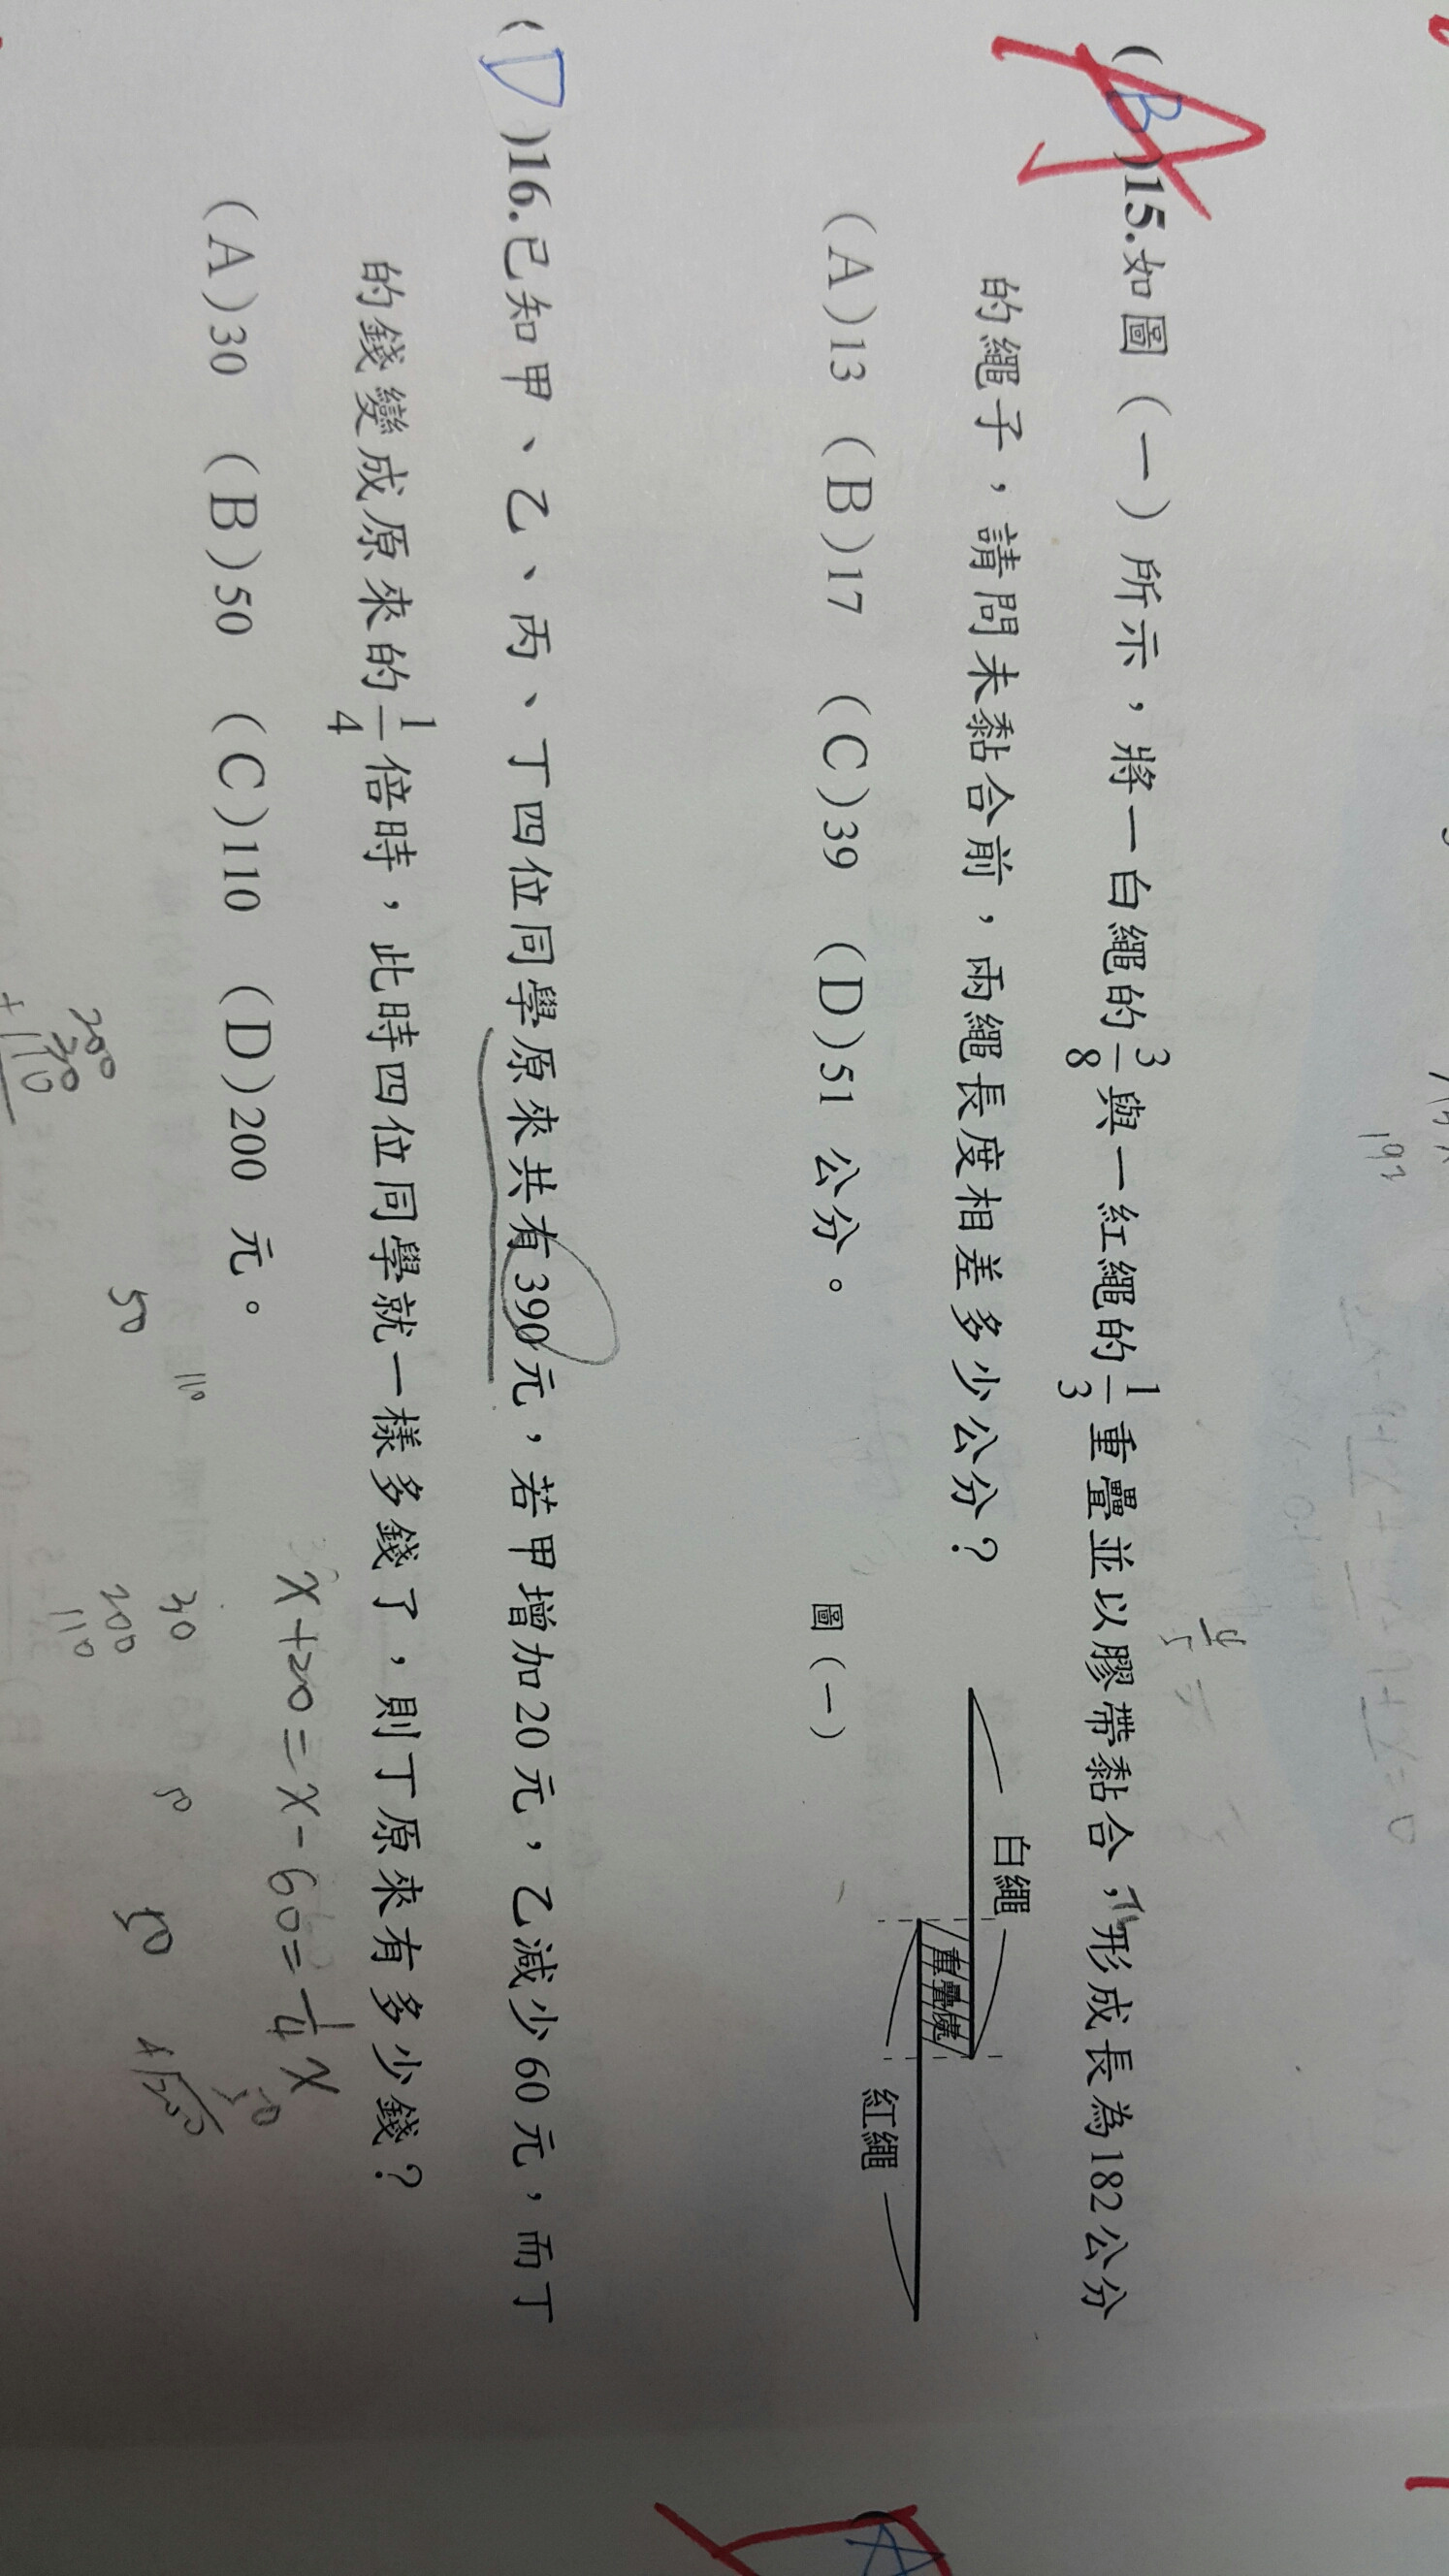 (B)15.如圖(一)所示,將一白繩的3/8與一紅繩的1/3重疊並以膠帶黏合,形成長為182公分
的繩子,請問未黏合前,兩繩長度相差多少公分?
(A)13 (B)17 (C)39 (D)51 公分。
A
白繩
重疊處
紅繩
圖(一)
(D)16.已知甲、乙、丙、丁四位同學原來共有390元,若甲增加20元,乙減少60元,而丁
的錢變成原來的1/4倍時,此時四位同學就一樣多錢了,則丁原來有多少錢?
(A)30 (B)50 (C)110 (D)200 元。
x+20=x-60=1/4x
50
110
30
200
110
50
50
50
200
30
+110
A